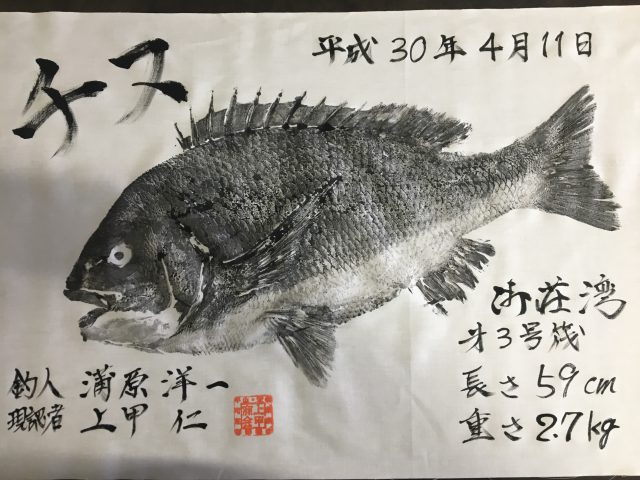 チヌ
平成30年4月11日
御荘湾
才3号筏
長さ59cm
重さ2.7kg
釣人 蒲原洋一
現認者 上甲仁